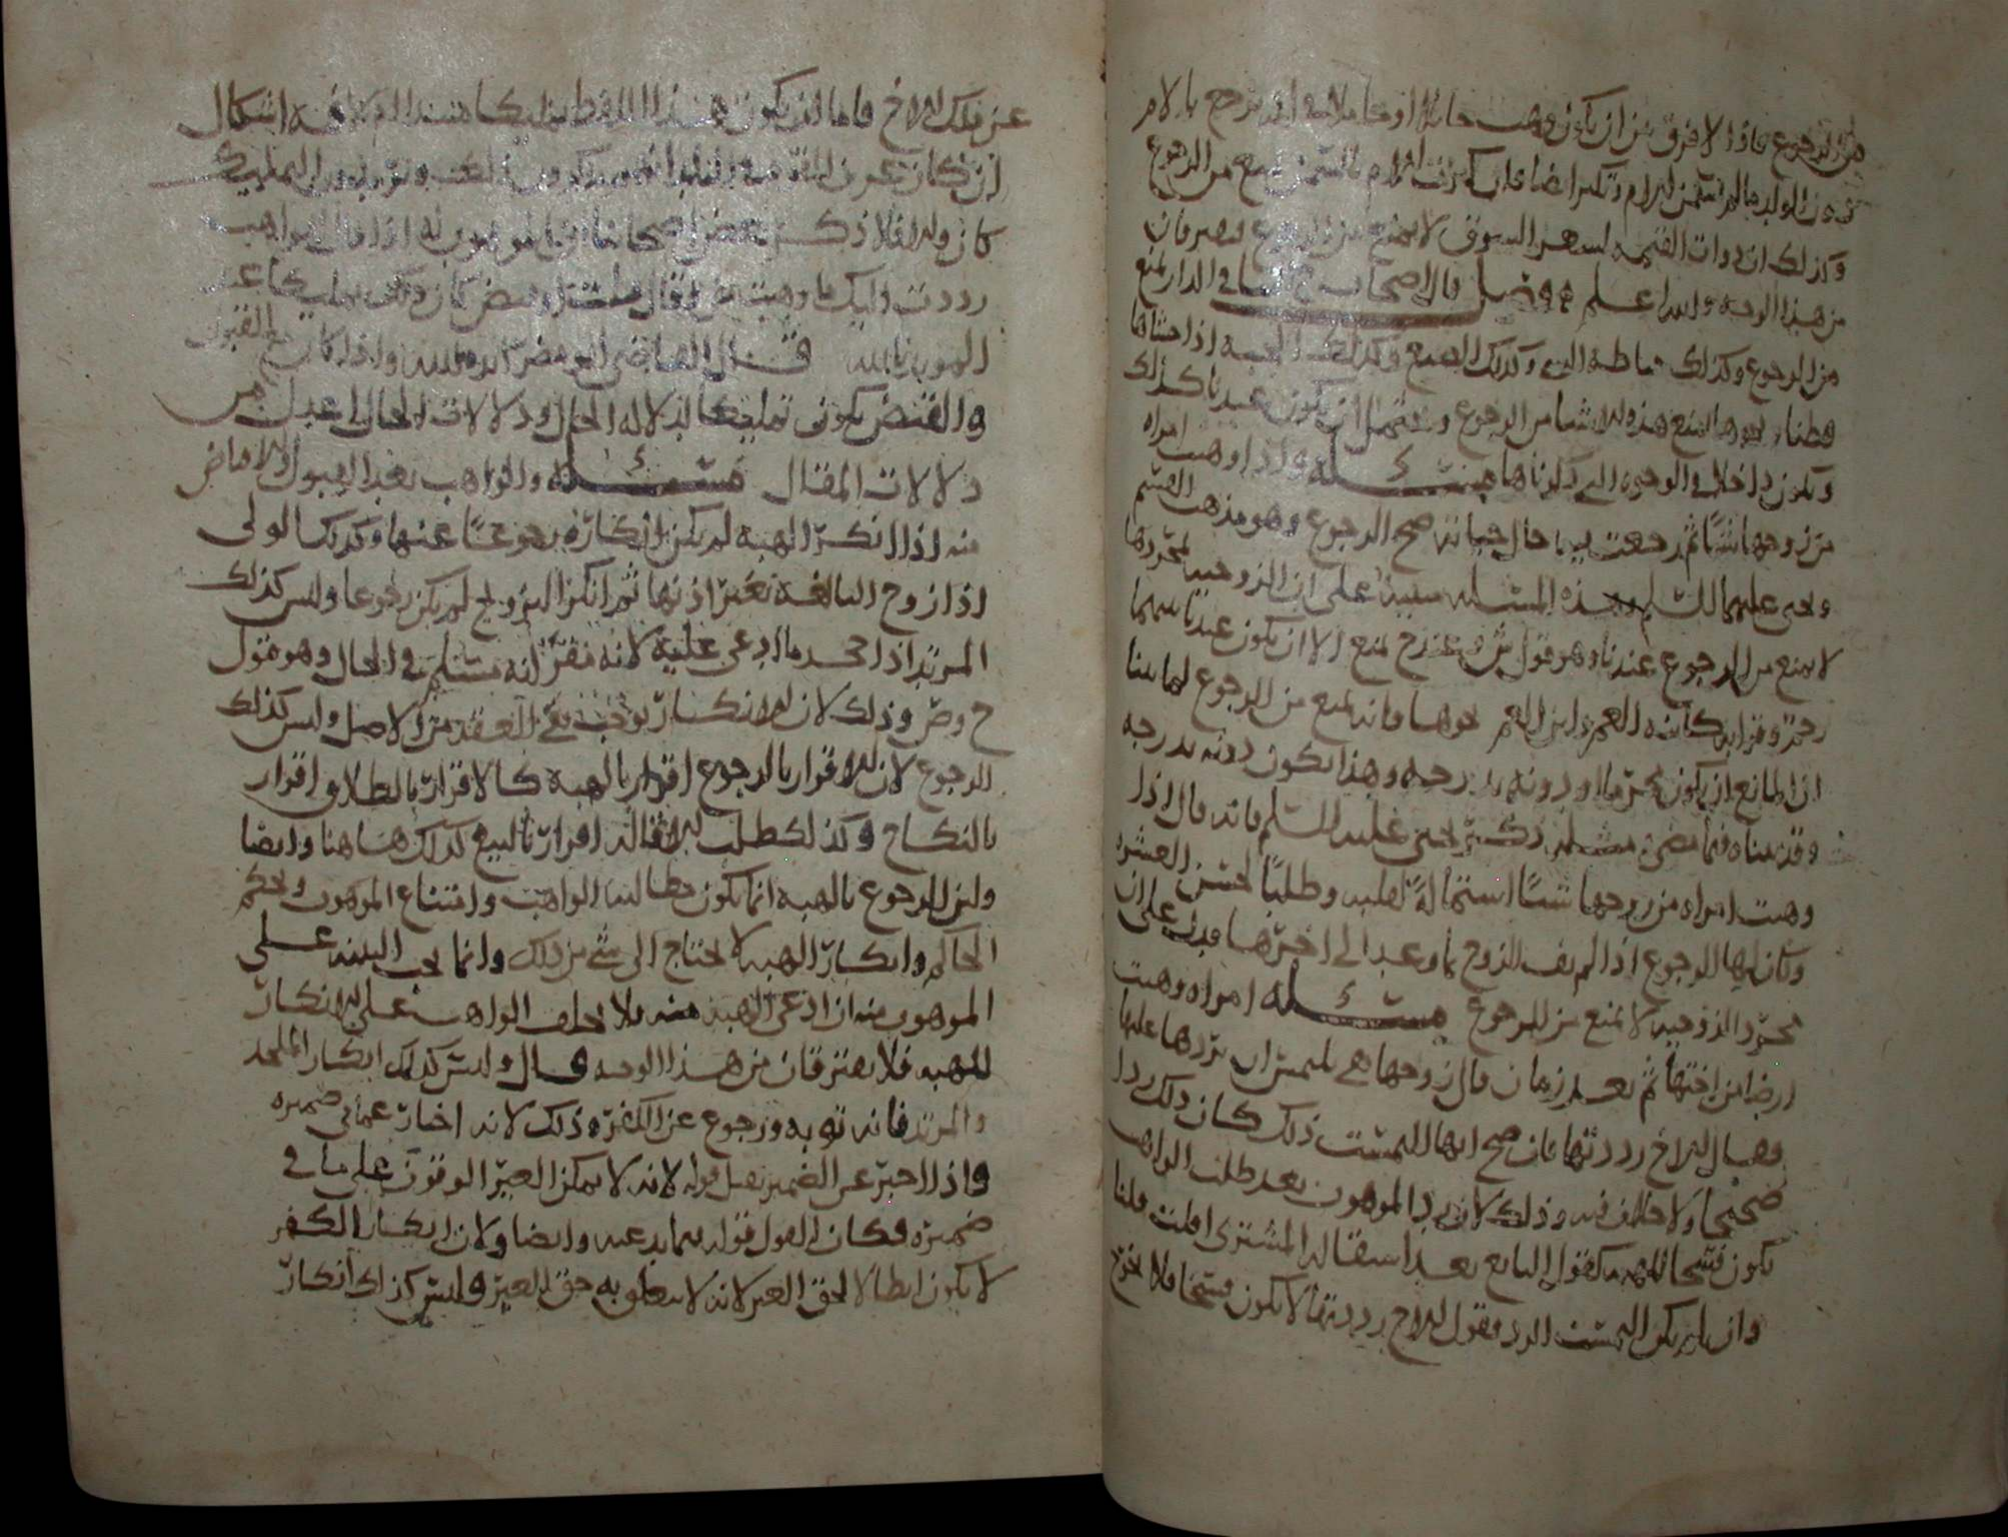 من الرجوع فاذا لا فرق بين ان يكون وهبت حائلا او حاملا في انه يرجع بالام
دون الولد ما لم تسمن الام وتكبر ايضا فان كبرت الام بالسمن يمنع من الرجوع
وكذلك ان زادت القيمه لسعر السوق لا يمنع من الرجوع فيصرفان
من هذا الوجه والله اعلم فصل قال الاصحاب ح البنا في الدار يمنع
من الرجوع وكذلك خياطه الثوب وكذلك الصبغ وكذلك الجبه اذا حشاها
قطنا ونحوها يمنع هذه الاشيا من الرجوع ويحتمل ان يكون عندنا كذلك
ويكون داخلا في الوجوه التي ذكرناها مسئله واذا وهبت امراه
من زوجها شيئا ثم رجعت فيه حال حياته صح الرجوع وهو مذهب القسم
ويحيى عليهما السلم وهذه المسئله مبنية على ان الزوجيه بمجردها
لا يمنع من الرجوع عندنا وهو قول ش وعند ح يمنع الا ان يكون عندنا بينهما
رحم وقرابه كابنه العم وابن العم نحوها فانه يمنع من الرجوع لما بينا
ان المانع ان يكون محرما او دونه بدرجه وهذا يكون دونه بدرجه
وقد بيناه فيما مضى مسئله ذكر يحيى عليه السلم فانه قال اذا
وهبت امراه من زوجها شيئا استمالة لقلبه وطلبا لحسن العشره
وكان لها الرجوع اذا لم يف الزوج بما وعد الى اخرها فدل على ان
مجرد الزوجيه لا يمنع من الرجوع مسئله امراه وهبت
ارضا من اختها ثم بعد زمان قال زوجها هي تلتمس ان تردها عليها
فقال الاخ رددتها فان صح انها التمست ذلك كان ذلك ردا
صحيحا ولا خلاف فيه وذلك لان رد الموهوب بعد طلب الواهب
يكون فسخا للهبه كقول البايع بعد استقاله المشترى اقلت فلنا
وان لم يكن التمست الرد فقول الاخ رددتها لا يكون فسخا فلا يخرج
عن ملك الاخ فاما ان يكون هذا اللفظ تمليكا مبتدا ام لا ففيه اشكال
ان كان عرف
كان والا فلا ذكر بعض اصحابنا ان الموهوب له اذا قال للواهب
رددت اليك ما وهبت مني وقال قبلت وقبض كان ذلك تمليكا عند
المويد بالله قال القاضي ابو مضر رحمه الله واذا كان مع القبول
والقبض يكون تمليكا لدلاله الحال ودلالات الحال اعدل من
دلالات المقال مسئله والواهب بعد القبول والاقباض
منه اذا انكر الهبه لم يكن انكاره رجوعا عنها وكذلك الولى
اذا زوج البالغه بغير اذنها ثم انكر التزويج لم يكن رجوعا وليس كذلك
المرتد اذا جحد ما ادعى عليه لانه مقر انه مسلم في الحال وهو قول
ح وص وذلك لان الانكار يوجب نفي العقد من الاصل وليس كذلك
الرجوع لان الاقرار بالرجوع اقرار بالهبه كالاقرار بالطلاق اقرار
بالنكاح وكذلك طلب الاقاله اقرار بالبيع كذلك هاهنا وايضا
ولان الرجوع بالهبه انما يكون مطالبه الواهب وامتناع الموهوب ويحكم
الحاكم وانكار الهبه لا يحتاج الى شي من ذلك وانما يجب البينه على
الموهوب منه ان ادعى الهبه منه ولا يحلف الواهب على الانكار
للهبه فلا يفترقان من هذا الوجه قال وليس كذلك انكار الملحد
والمرتد فانه توبه ورجوع عن الكفر وذلك لانه اخبار عما في ضميره
واذا اخبر عن الضمير يقبل قوله لانه لا يمكن الغير الوقوف على ما في
ضميره فكان القول قوله فيما يدعيه وايضا ولان انكار الكفر
لا يكون ابطالا لحق الغير لانه لا يتعلق به حق الغير وليس كذلك انكار